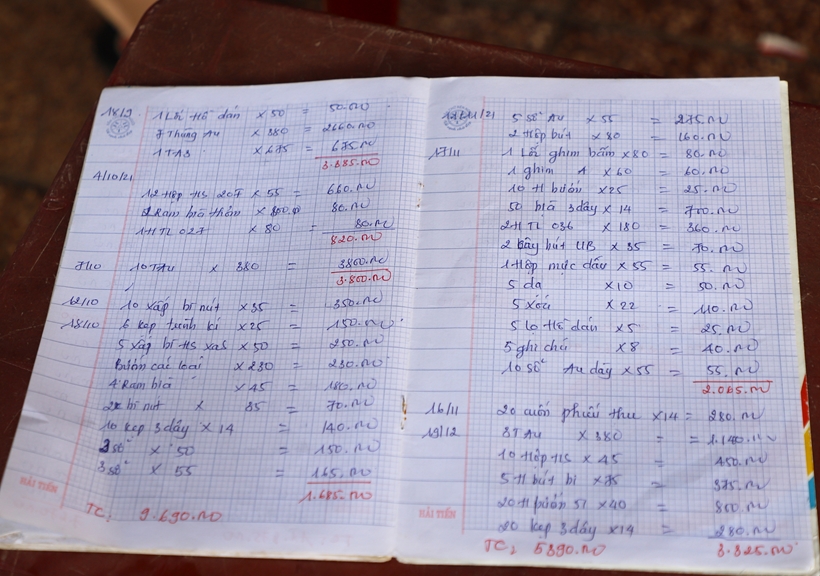 18/9 1 Lốc hồ dán × 50 = 50.000
7 Thùng Au × 380 = 2660.000
1 TA3 × 675 = 675.000
3.385.000
4/10/21
12 Hộp HS 207 × 55 = 660.000
2 Ram bìa thơm × = 80.000
1 H TL 027 × 80 = 80.000
820.000
7/10 10 TAu × 380 = 3800.000
3.800.000
12/10 10 xấp bì nút × 35 = 350.000
18/10 6 kẹp trình kí × 25 = 150.000
5 xấp bì HS × 50 = 250.000
Bướm các loại × 230 = 230.000
4 Ram bìa × 45 = 180.000
2x bì nút × 35 = 70.000
10 kẹp 3 dây × 14 = 140.000
3 sổ × 50 = 150.000
3 sổ × 55 = 165.000
1.685.000
HẢI TIẾN
TC: 9.690.000
11/21 5 sổ Au × 55 = 275.000
2 Hộp bút × 80 = 160.000
17/11 1 Lốc ghim bấm × 80 = 80.000
1 ghim A × 60 = 60.000
10 H bướm × 25 = 25.000
50 bìa 3 dây × 14 = 700.000
2 H TL 036 × 180 = 360.000
2 cây bút UB × 35 = 70.000
1 Hộp mực dấu × 55 = 55.000
5 dạ × 10 = 50.000
5 xoá × 22 = 110.000
5 lọ Hồ dán × 5 = 25.000
5 ghi chú × 8 = 40.000
10 sổ Au dày × 55 = 55.000
2.065.000
16/11 20 cuốn phiếu thu × 14 = 280.000
19/12 3 TAu × 380 = 1.140.000
10 Hộp HS × 45 = 450.000
5 H bút bi × 75 = 375.000
20 H bướm 51 × 40 = 800.000
20 kẹp 3 dây × 14 = 280.000
HẢI TIẾN
TC: 5390.000 3.325.000